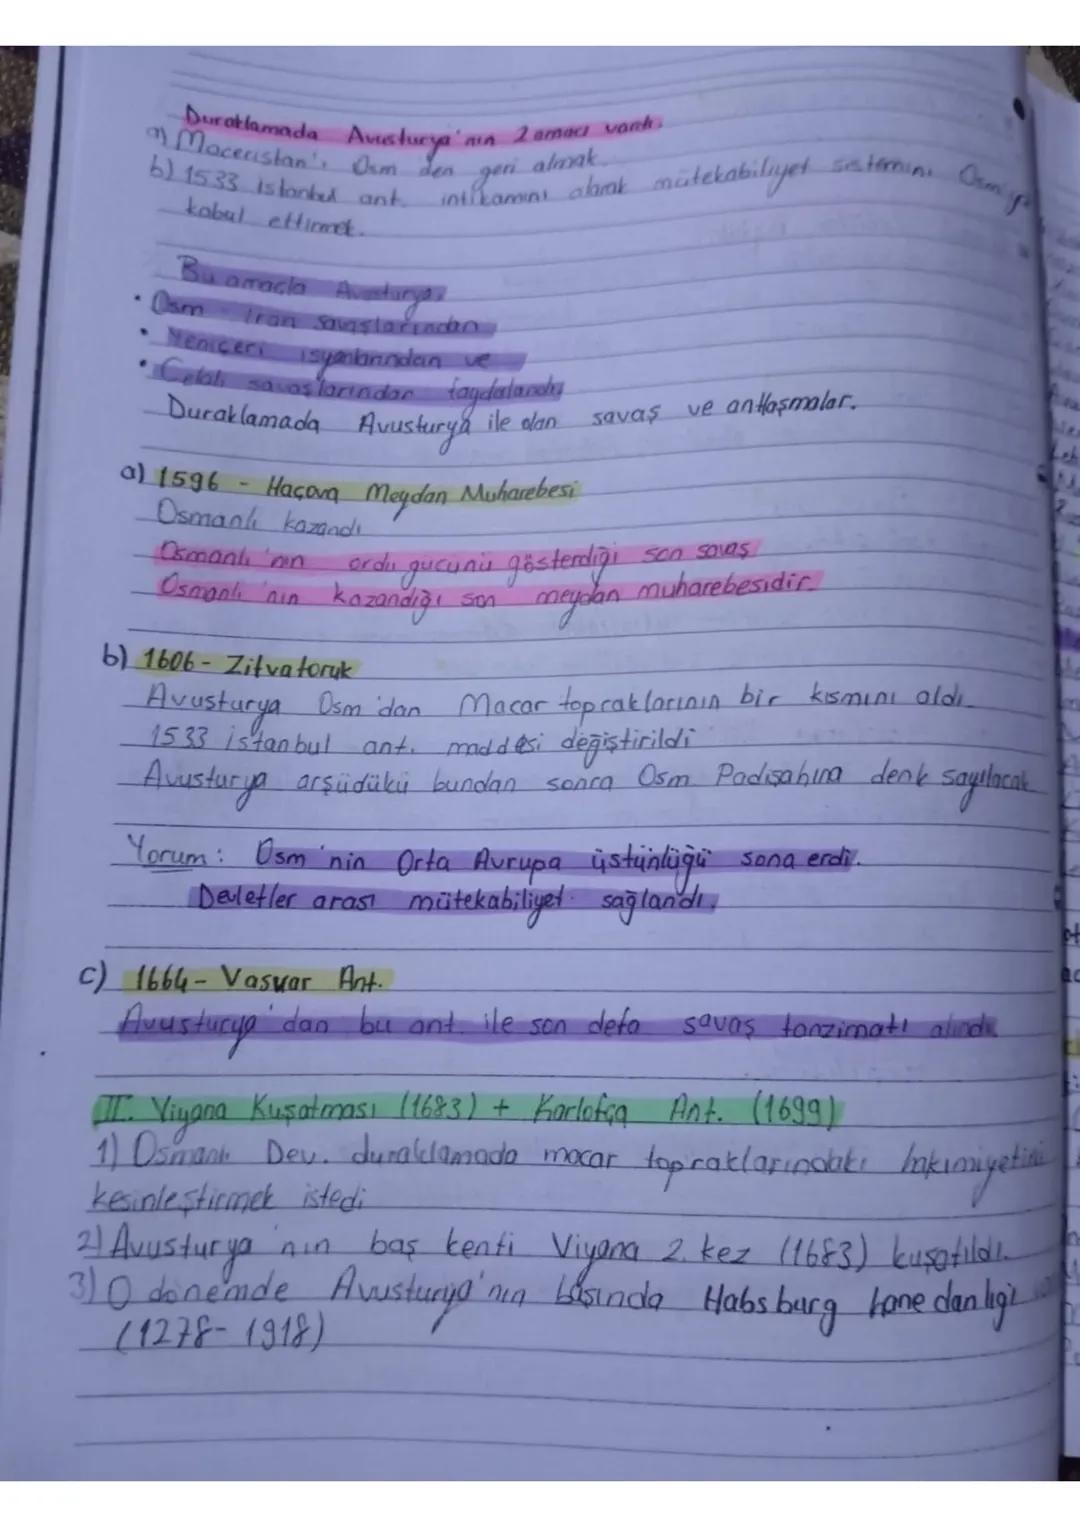 Duraklamada Avusturya'nın 2 amacı vardı.
a) Macerıstan'ı Osm den geri almak.
b) 1533 istanbul ant. intikamını alarak mütekabiliyet sistemini Osm'ye
kabul ettirmek.
Bu amaçla Avusturya,
• Osm - Iran savaşlarından
• Yeniçeri isyanlarından ve
• Celali savaşlarından faydalandı
Duraklamada Avusturya ile olan savaş ve antlaşmalar.
a) 1596 - Haçova Meydan Muharebesi
Osmanlı kazandı
Osmanlı'nın ordu gücünü gösterdiği son savaş
Osmanlı'nın kazandığı son meydan muharebesidir.
b) 1606 - Zitvatoruk
Avusturya Osm'dan Macar topraklarının bir kısmını aldı.
1533 istanbul ant. maddesi değiştirildi
Avusturya arşüdükü bundan sonra Osm Padişahına denk sayılacak
Yorum: Osm'nin Orta Avrupa üstünlüğü sona erdi.
Devletler arası mütekabiliyet sağlandı.
c) 1664 - Vasvar Ant.
Avusturya'dan bu ant. ile son defa savaş tanzimatı alındı
II. Viyana Kuşatması (1683) + Karlofça Ant. (1699)
1) Osmanlı Dev. duraklamada macar topraklarındaki hakimiyetini
kesinleştirmek istedi
2) Avusturya'nın baş kenti Viyana 2. kez (1683) kuşatıldı.
3) O dönemde Avusturya'nın başında Habsburg hanedanlığı
(1278-1918)